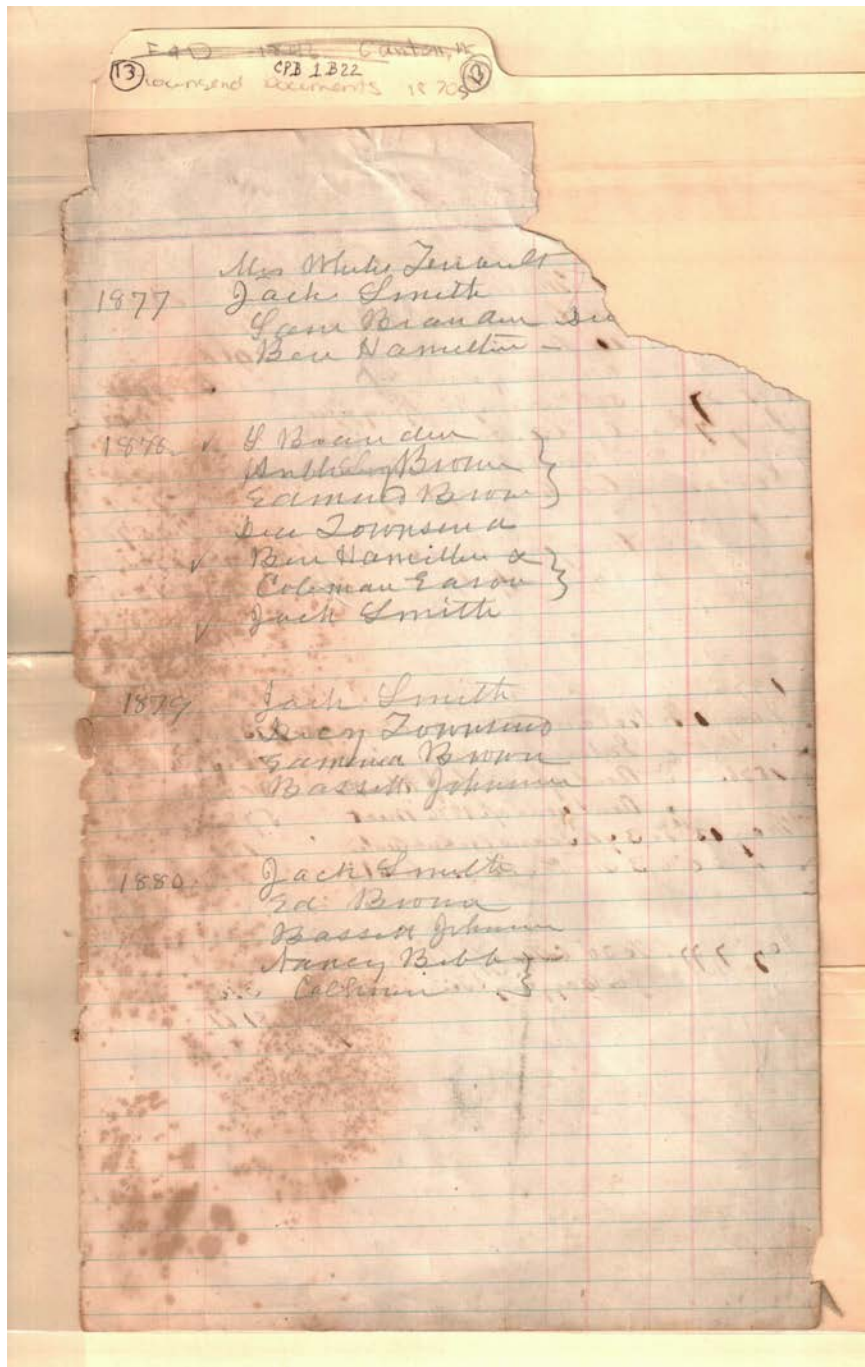 Canton,
13 CPB 1B22 13
Townsend Documents 1870s
Mrs White
1877 Jack Smith
Ben Hamilton —
1878 ✓ Brandon
Anthony Brown }
Edmund Brown
Townsend
✓ Ben Hamilton & }
Coleman Eason
✓ Jack Smith
1879 Jack Smith
Lucy Townsend
Edmund Brown
Bassett Johnson
1880 Jack Smith
Ed Brown
Bassett Johnson
Nancy Bibb }
Calhoun